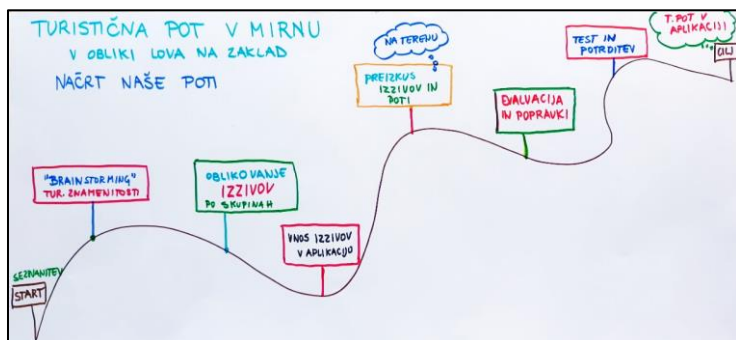 TURISTIČNA POT V MIRNU
V OBLIKI LOVA NA ZAKLAD
NAČRT NAŠE POTI
SEZNANITEV
START
"BRAINSTORMING"
TUR. ZNAMENITOSTI
OBLIKOVANJE
IZZIVOV
PO SKUPINAH
VNOS IZZIVOV
V APLIKACIJO
NA TERENU
PREIZKUS
IZZIVOV IN
POTI
EVALVACIJA
IN POPRAVKI
TEST IN
POTRDITEV
T. POT V
APLIKACIJI
CILJ